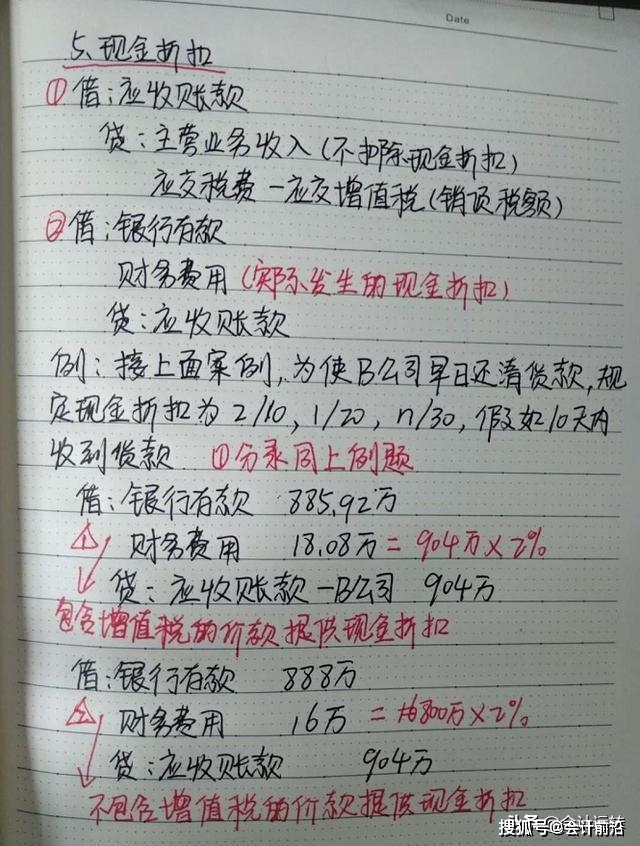 Date
5、现金折扣
①借：应收账款
贷：主营业务收入(不扣除现金折扣)
应交税费一应交增值税(销项税额)
②借：银行存款
财务费用(实际发生的现金折扣)
贷：应收账款
例：接上面案例，为使B公司早日还清货款，规
定现金折扣为2/10，1/20，n/30，假如10天内
收到货款 ①分录同上例题
借：银行存款 885.92万
① 财务费用 18.08万=904万×2%
贷：应收账款一B公司 904万
包含增值税的价款提供现金折扣
借：银行存款 888万
② 财务费用 16万 =800万×2%
贷：应收账款 904万
不包含增值税的价款提供现金折扣
搜狐号@会计前沿